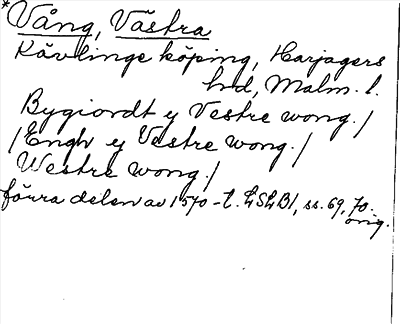 *Vång, Västra
Kävlinge köping, Harjagers
hd, Malm. l.
Bygiordt y Vestre wong./
/Engh y Vestre wong./
Westre wong./
förra delen av 1570-t. LSLB1, ss. 69, 70.
orig.